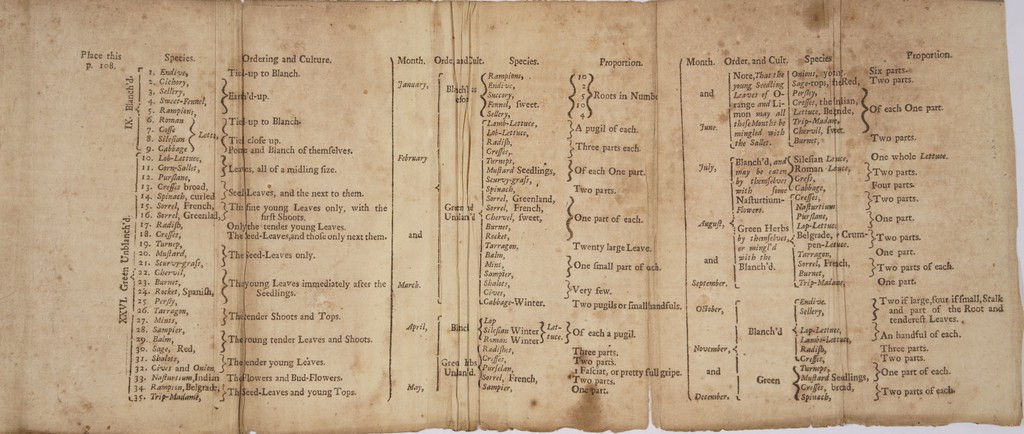 Place this
p. 108.
Species.
Ordering and Culture.
IX. Blanch'd.
1. Endive,
2. Cichory,
3. Sellery,
4. Sweet-Fennel,
5. Rampions,
6. Roman
7. Cosse
8. Silesian
9. Cabbage
Lettu.
Tied-up to Blanch.
Earth'd-up.
Tied-up to Blanch.
Tied close up.
Pome and Blanch of themselves.
XXVI. Green Unblanch'd.
10. Lob-Lettuce,
11. Corn-Sallet,
12. Purslane,
13. Cresses broad,
14. Spinach, curled
15. Sorrel, French,
16. Sorrel, Greenland,
17. Radish,
18. Cresses,
19. Turnep,
20. Mustard,
21. Scurvy-grass,
22. Chervil,
23. Burnet,
24. Rocket, Spanish,
25. Persly,
26. Tarragon,
27. Mints,
28. Sampier,
29. Balm,
30. Sage, Red,
31. Shalots,
32. Cives and Onion,
33. Nasturtium, Indian
34. Rampion, Belgrade,
35. Trip-Madame,
Leaves, all of a midling size.
Seed-Leaves, and the next to them.
The fine young Leaves only, with the
first Shoots.
Only the tender young Leaves.
The Seed-Leaves, and those only next them.
The Seed-Leaves only.
The young Leaves immediately after the
Seedlings.
The tender Shoots and Tops.
The young tender Leaves and Shoots.
The tender young Leaves.
The Flowers and Bud-Flowers.
The Seed-Leaves and young Tops.
Month.
Species.
Proportion.
January,
February
and
March.
Rampions,
Endive,
Succory,
Fennel, sweet.
Sellery,
10
2
5
10
4
Roots in
Green
Lamb-Lettuce,
Lob-Lettuce,
Radish,
Cresses,
Turneps,
Mustard Seedlings,
Scurvy-grass,
Spinach,
Sorrel, Greenland,
Sorrel, French,
Chervel, sweet,
Burnet,
Rocket,
Tarragon,
Balm,
Mint,
Sampier,
Shalots,
Cives,
Cabbage-Winter.
A pugil of each.
Three parts each.
Of each One part.
Two parts.
One part of each.
Twenty large Leaves.
One small part of each.
Very few.
Two pugils or small handfuls.
April,
and
May,
Lop
Silesian Winter
Roman Winter
Let-
tuce.
Of each a pugil.
Radishes,
Cresses,
Purselan,
Sorrel, French,
Sampier,
Three parts.
Two parts.
1 Fasciat, or pretty full gripe.
Two parts.
One part.
Month.
Order, and Cult.
Species
Proportion.
and
June.
Note, That the
young Seedling
Leaves of O-
range and Li-
mon may all
these Months be
mingled with
the Sallet.
Onions, young
Sage-tops, the Red,
Persley,
Cresses, the Indian,
Lettuce, Belgrade,
Trip-Madam,
Chervil, sweet.
Burnet,
Six parts.
Two parts.
Of each One part.
Two parts.
July,
August,
and
September.
Blanch'd, and
may be eaten
by themselves
with some
Nasturtium-
Flowers.
Silesian Lettuce,
Roman Lettuce,
Cress,
Cabbage,
One whole Lettuce.
Two parts.
Four parts.
Two parts.
Green Herbs
by themselves,
or mingl'd
with the
Blanch'd.
Cresses,
Nasturtium
Purslane,
Lop-Lettuce,
Belgrade, or Crum-
pen-Lettuce.
Tarragon,
Sorrel, French,
Burnet,
Trip-Madam,
One part.
Two parts.
One part.
Two parts of each.
One part.
October,
November,
and
December.
Blanch'd
Endive.
Sellery,
Lop-Lettuce,
Lambs-Lettuce,
Radish,
Cresses,
Two if large, four if small, Stalk
and part of the Root and
tenderest Leaves.
An handful of each.
Three parts.
Two parts.
Green
Turneps,
Mustard Seedlings,
Cresses, broad,
Spinach,
One part of each.
Two parts of each.